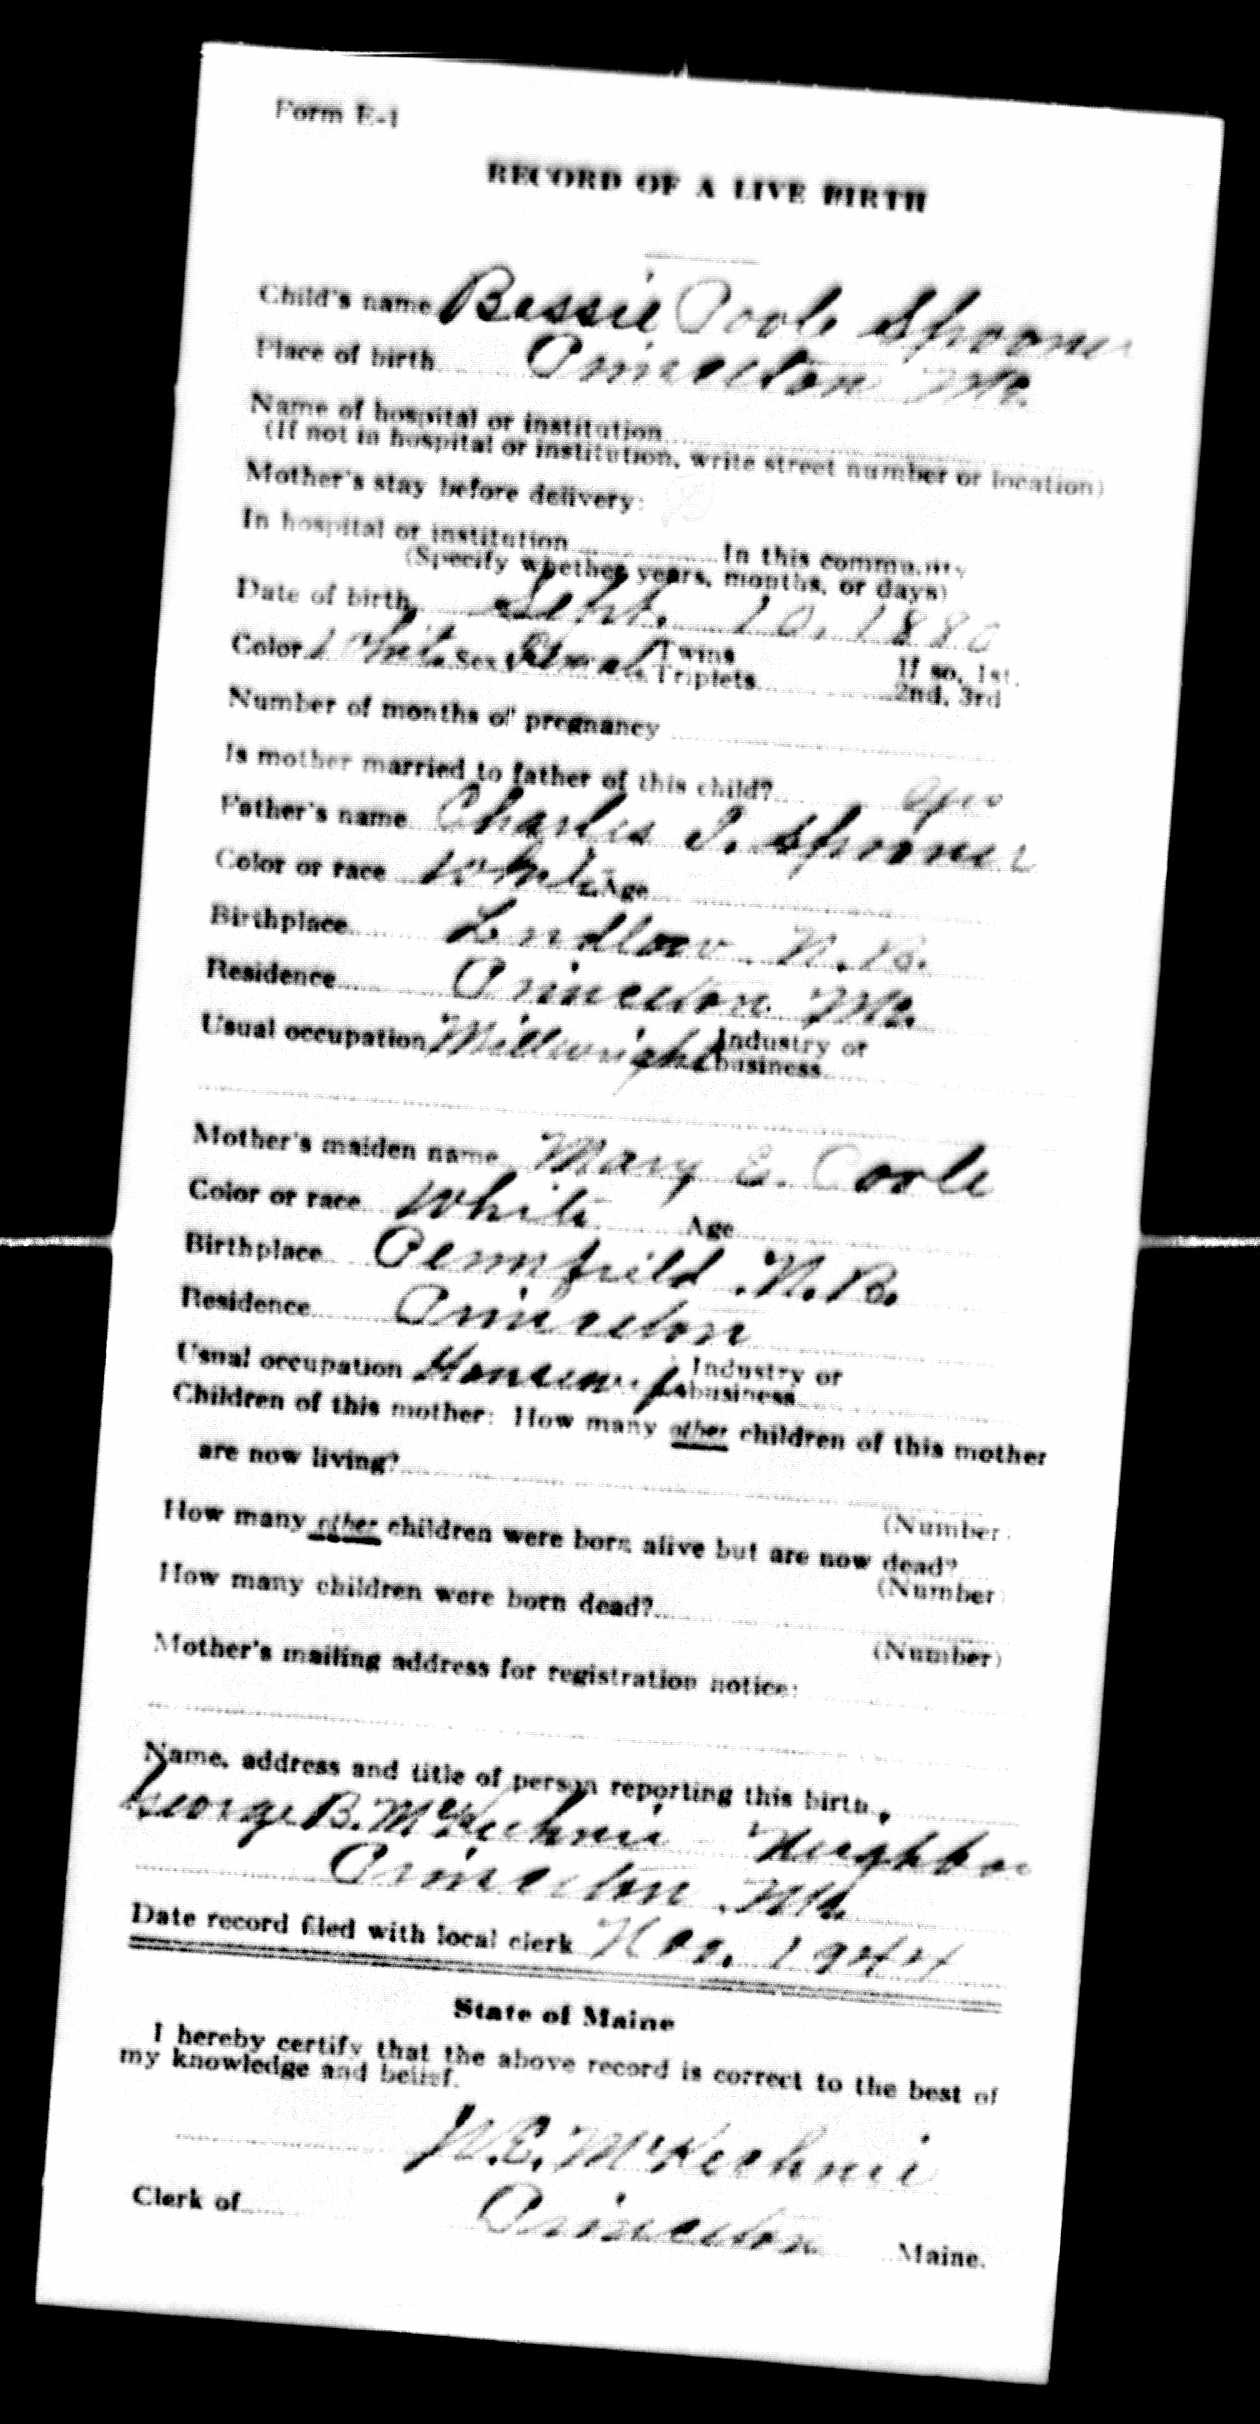 Form E-1
RECORD OF A LIVE BIRTH
Child's name Bessie Poole Spooner
Place of birth Princeton Me.
Name of hospital or institution
(If not in hospital or institution, write street number or location)
Mother's stay before delivery:
In hospital or institution In this community
(Specify whether years, months, or days)
Date of birth Sept. 10, 1880
Color White Sex Female Twins If so, 1st.
Triplets 2nd, 3rd
Number of months of pregnancy
Is mother married to father of this child? Yes
Father's name Charles I. Spooner
Color or race White Age
Birthplace Ludlow. N.B.
Residence Princeton Me.
Usual occupation Millwright Industry or
business
Mother's maiden name Mary E. Poole
Color or race White Age
Birthplace Pennfield. N.B.
Residence Princeton
Usual occupation Housewife Industry or
business
Children of this mother: How many other children of this mother
are now living?
(Number)
How many other children were born alive but are now dead?
(Number)
How many children were born dead?
(Number)
Mother's mailing address for registration notice:
Name, address and title of person reporting this birth.
George B. McKechnie Neighbor
Princeton. Me.
Date record filed with local clerk Nov. 1944
State of Maine
I hereby certify that the above record is correct to the best of
my knowledge and belief.
W.E. McKechnie
Clerk of Princeton Maine.